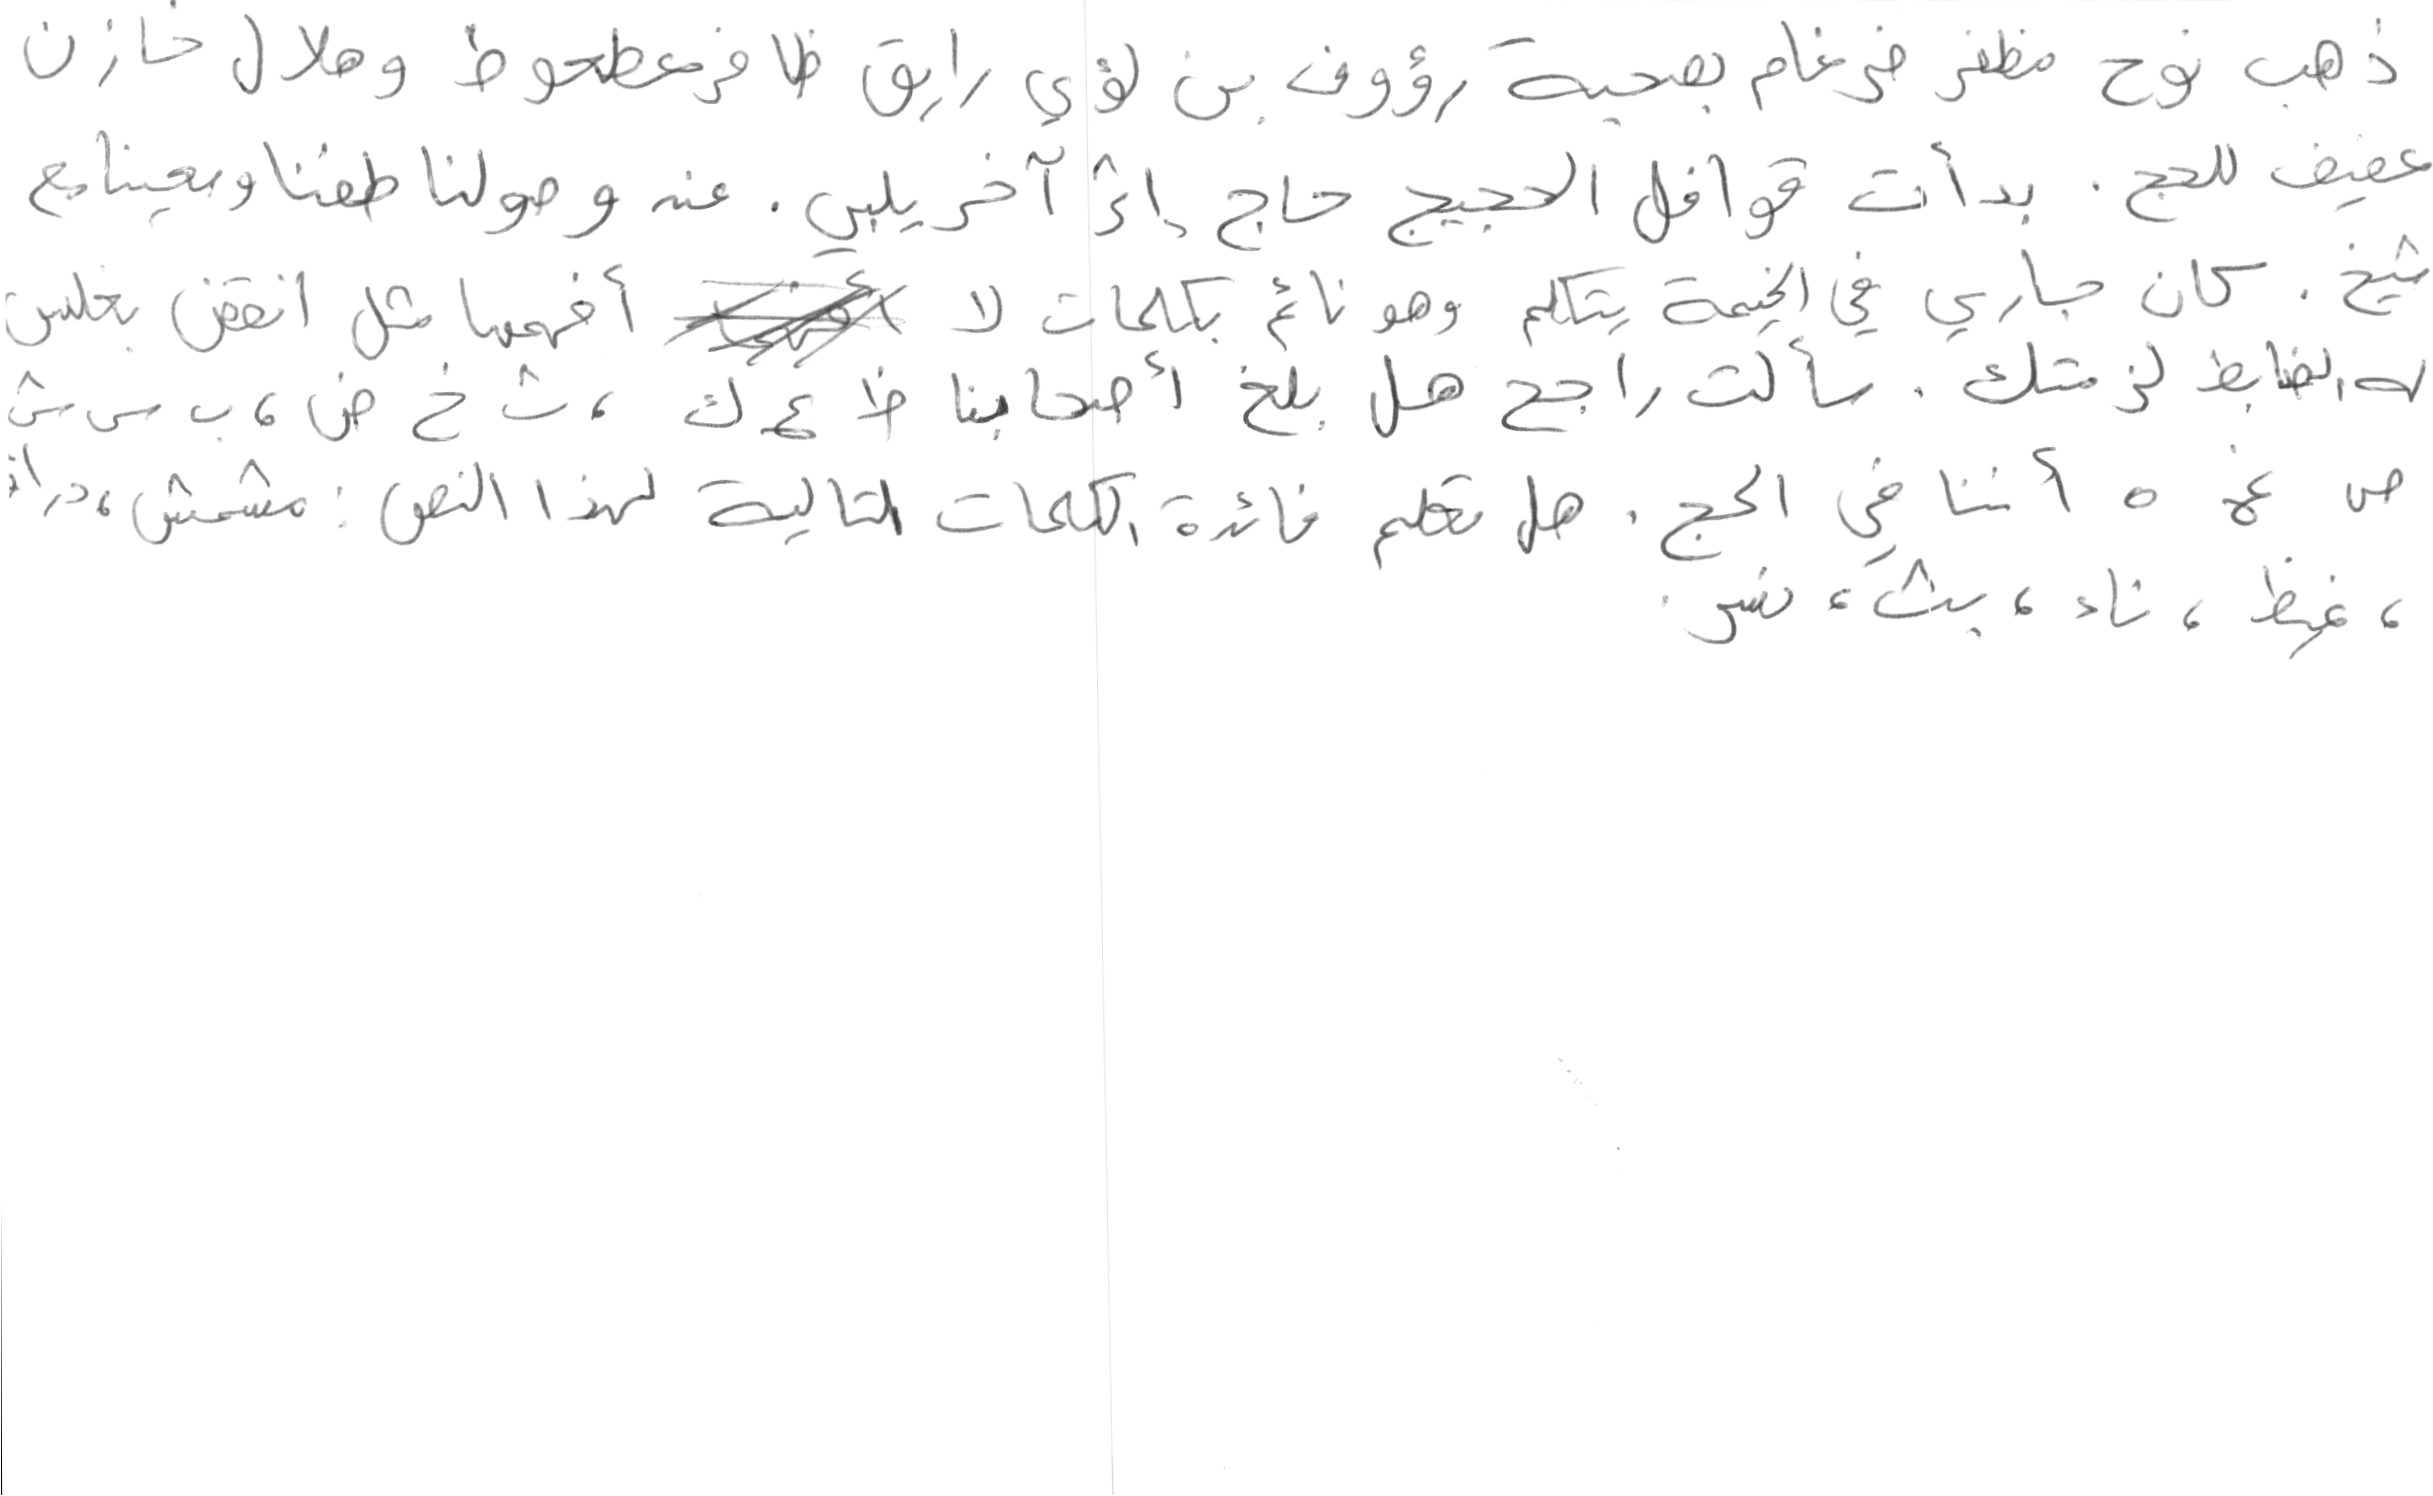 ذهب نوح مظفر ضرغام بصحبة رؤوف بن لؤي رايق ظافر معطحوط وهلال خازن
عفيف للحج. بدأت قوافل الحجيج حاج إثر آخر يلبي. عند وصولنا طفنا وسعينا مع
شيخ. كان جاري في الخيمة يتكلم وهو نائم بكلمات لا أفهمها مثل انقض بغلس
لك الضابط لزمتك. سألت راجح هل بلغ أصحابنا ظ ع ك ، ث خ ض ، ب س ش
ص غ ه أننا في الحج. هل تعلم فائدة الكلمات التالية لهذا النص: مشمش، درأ
، غيظ ، ناد ، بث ، نسر.